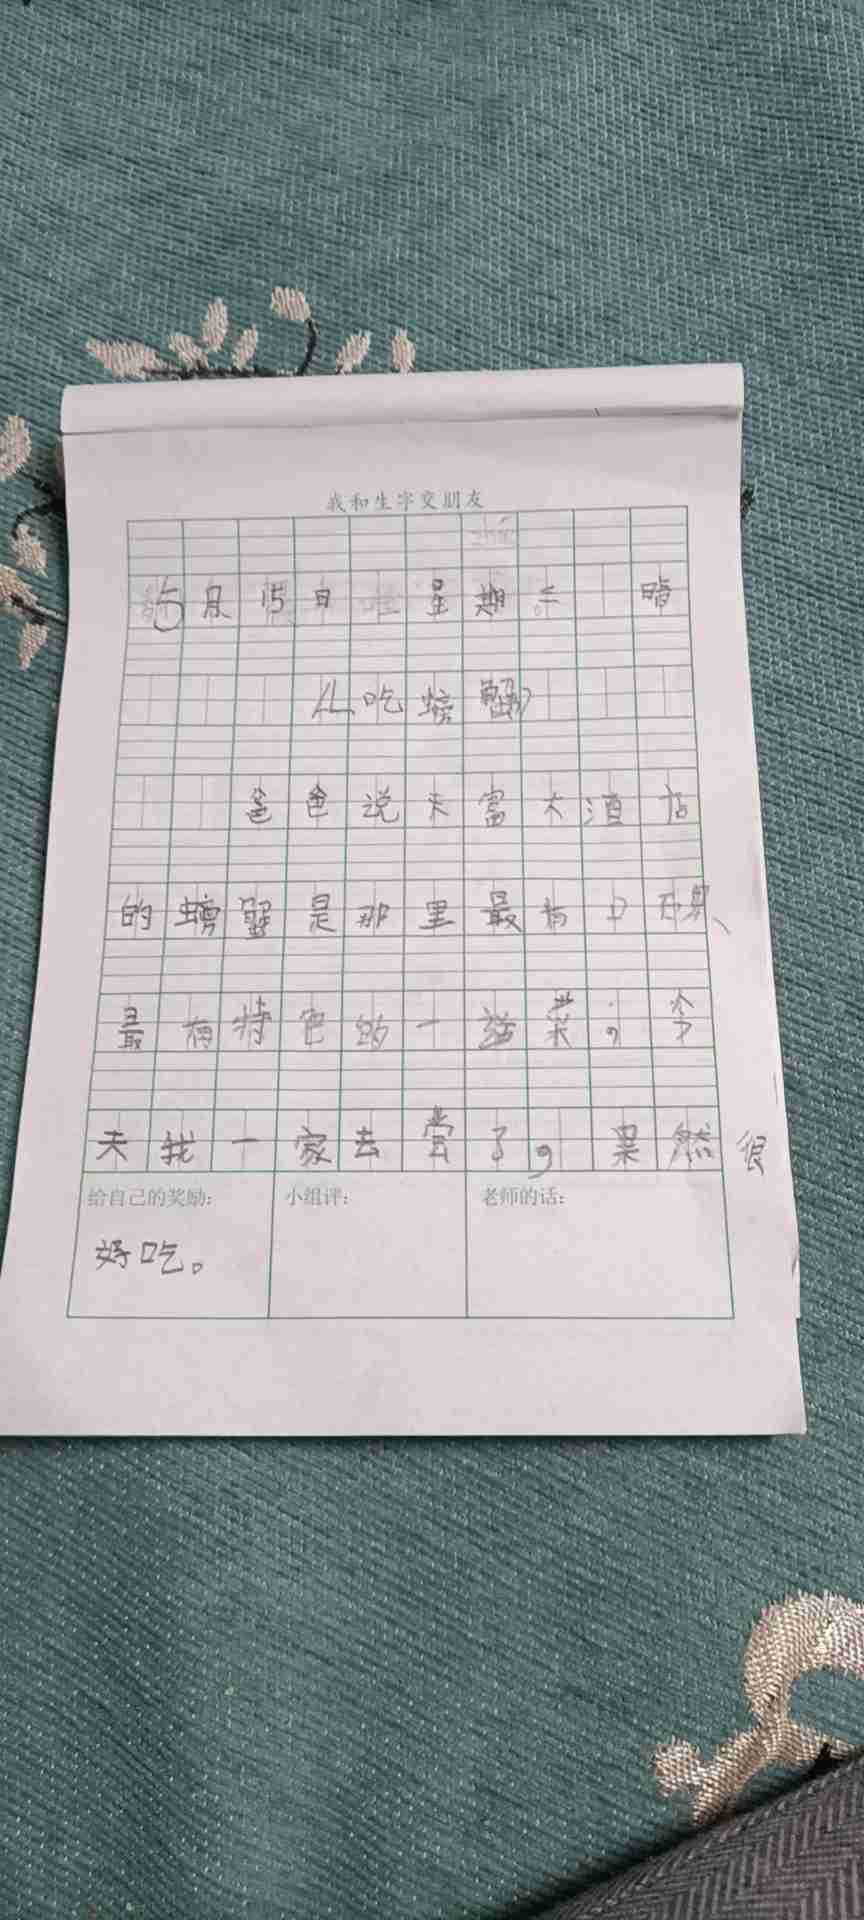 我和生字交朋友
5月15日 星期二 晴
《吃螃蟹》
爸爸说天富大酒店
的螃蟹是那里最有口碑、
最有特色的一道菜,今
天我一家去尝了,果然很
给自己的奖励: 小组评: 老师的话:
好吃。